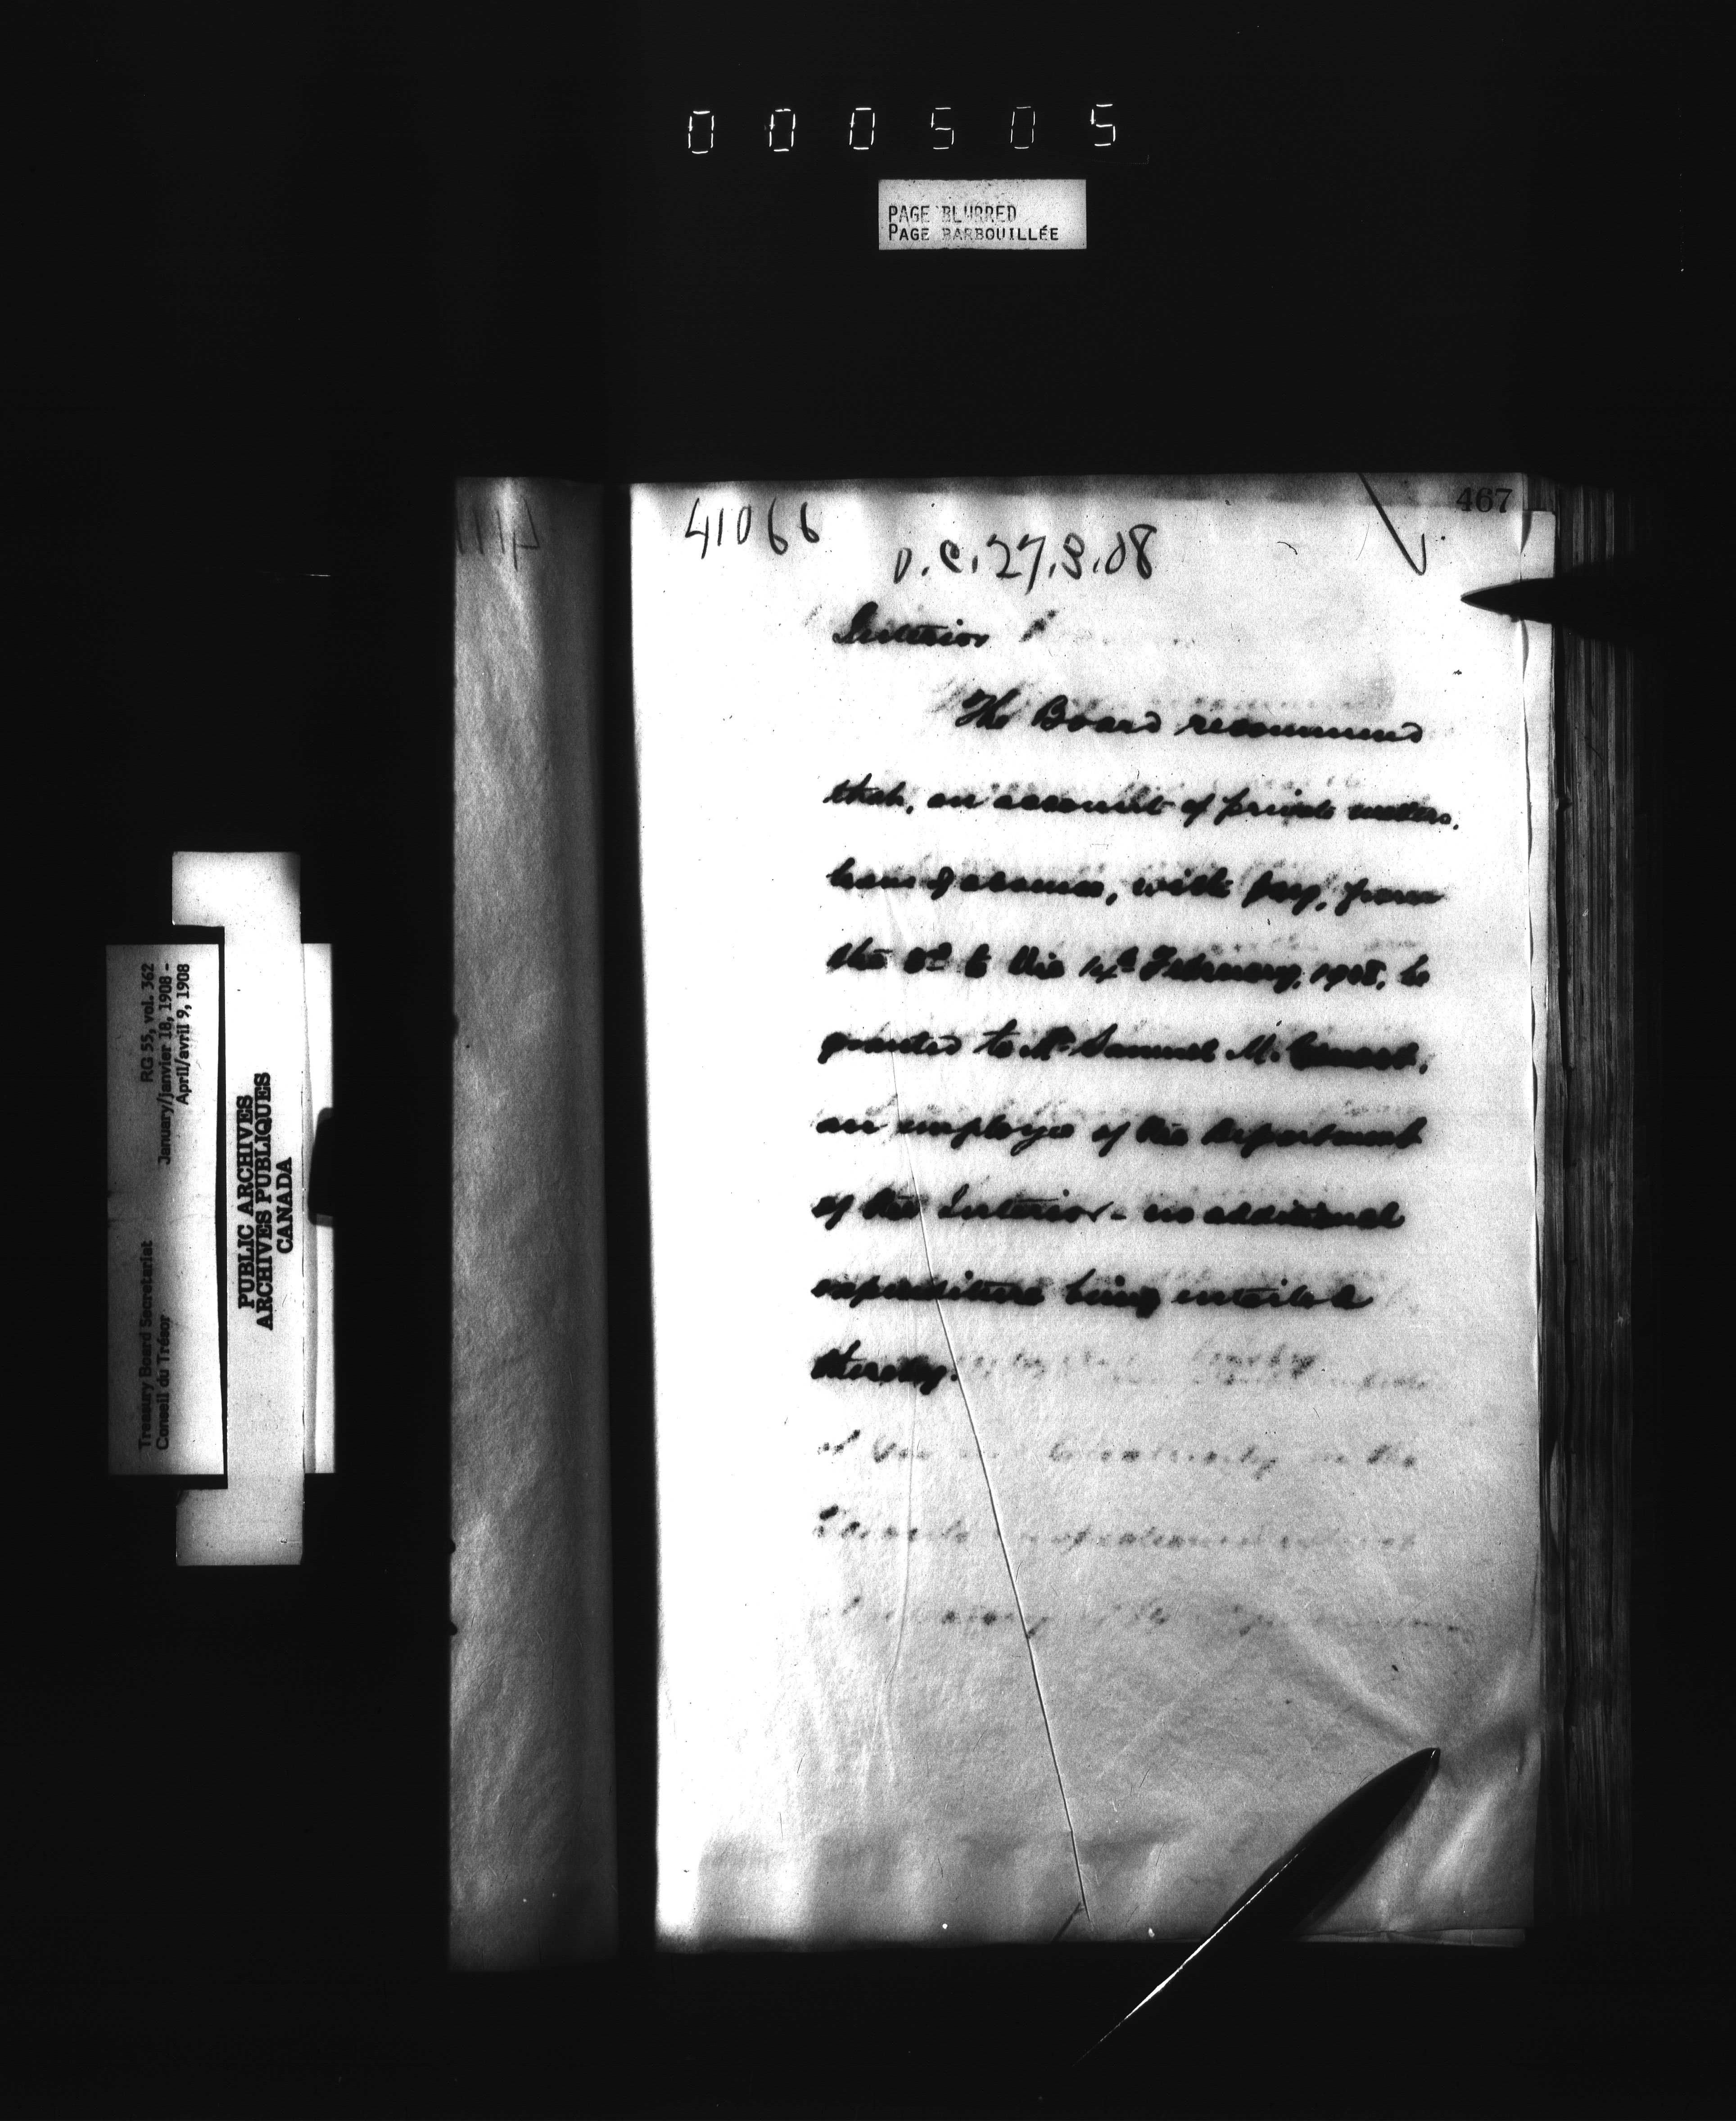 000505
PAGE BLURRED
PAGE BARBOUILLÉE
467
41066
O.C. 27.3.08
Interior
The Board recommend
that, on account of private matters,
leave of absence, with pay, from
the to the 14th February, 1908, be
granted to Mr Samuel M.
an employee of the Department
of the Interior - no additional
expenditure being entailed
thereby.
RG 55, vol. 362
January/janvier 18, 1908 -
April/avril 9, 1908
Treasury Board Secretariat
Conseil du Trésor
PUBLIC ARCHIVES
ARCHIVES PUBLIQUES
CANADA